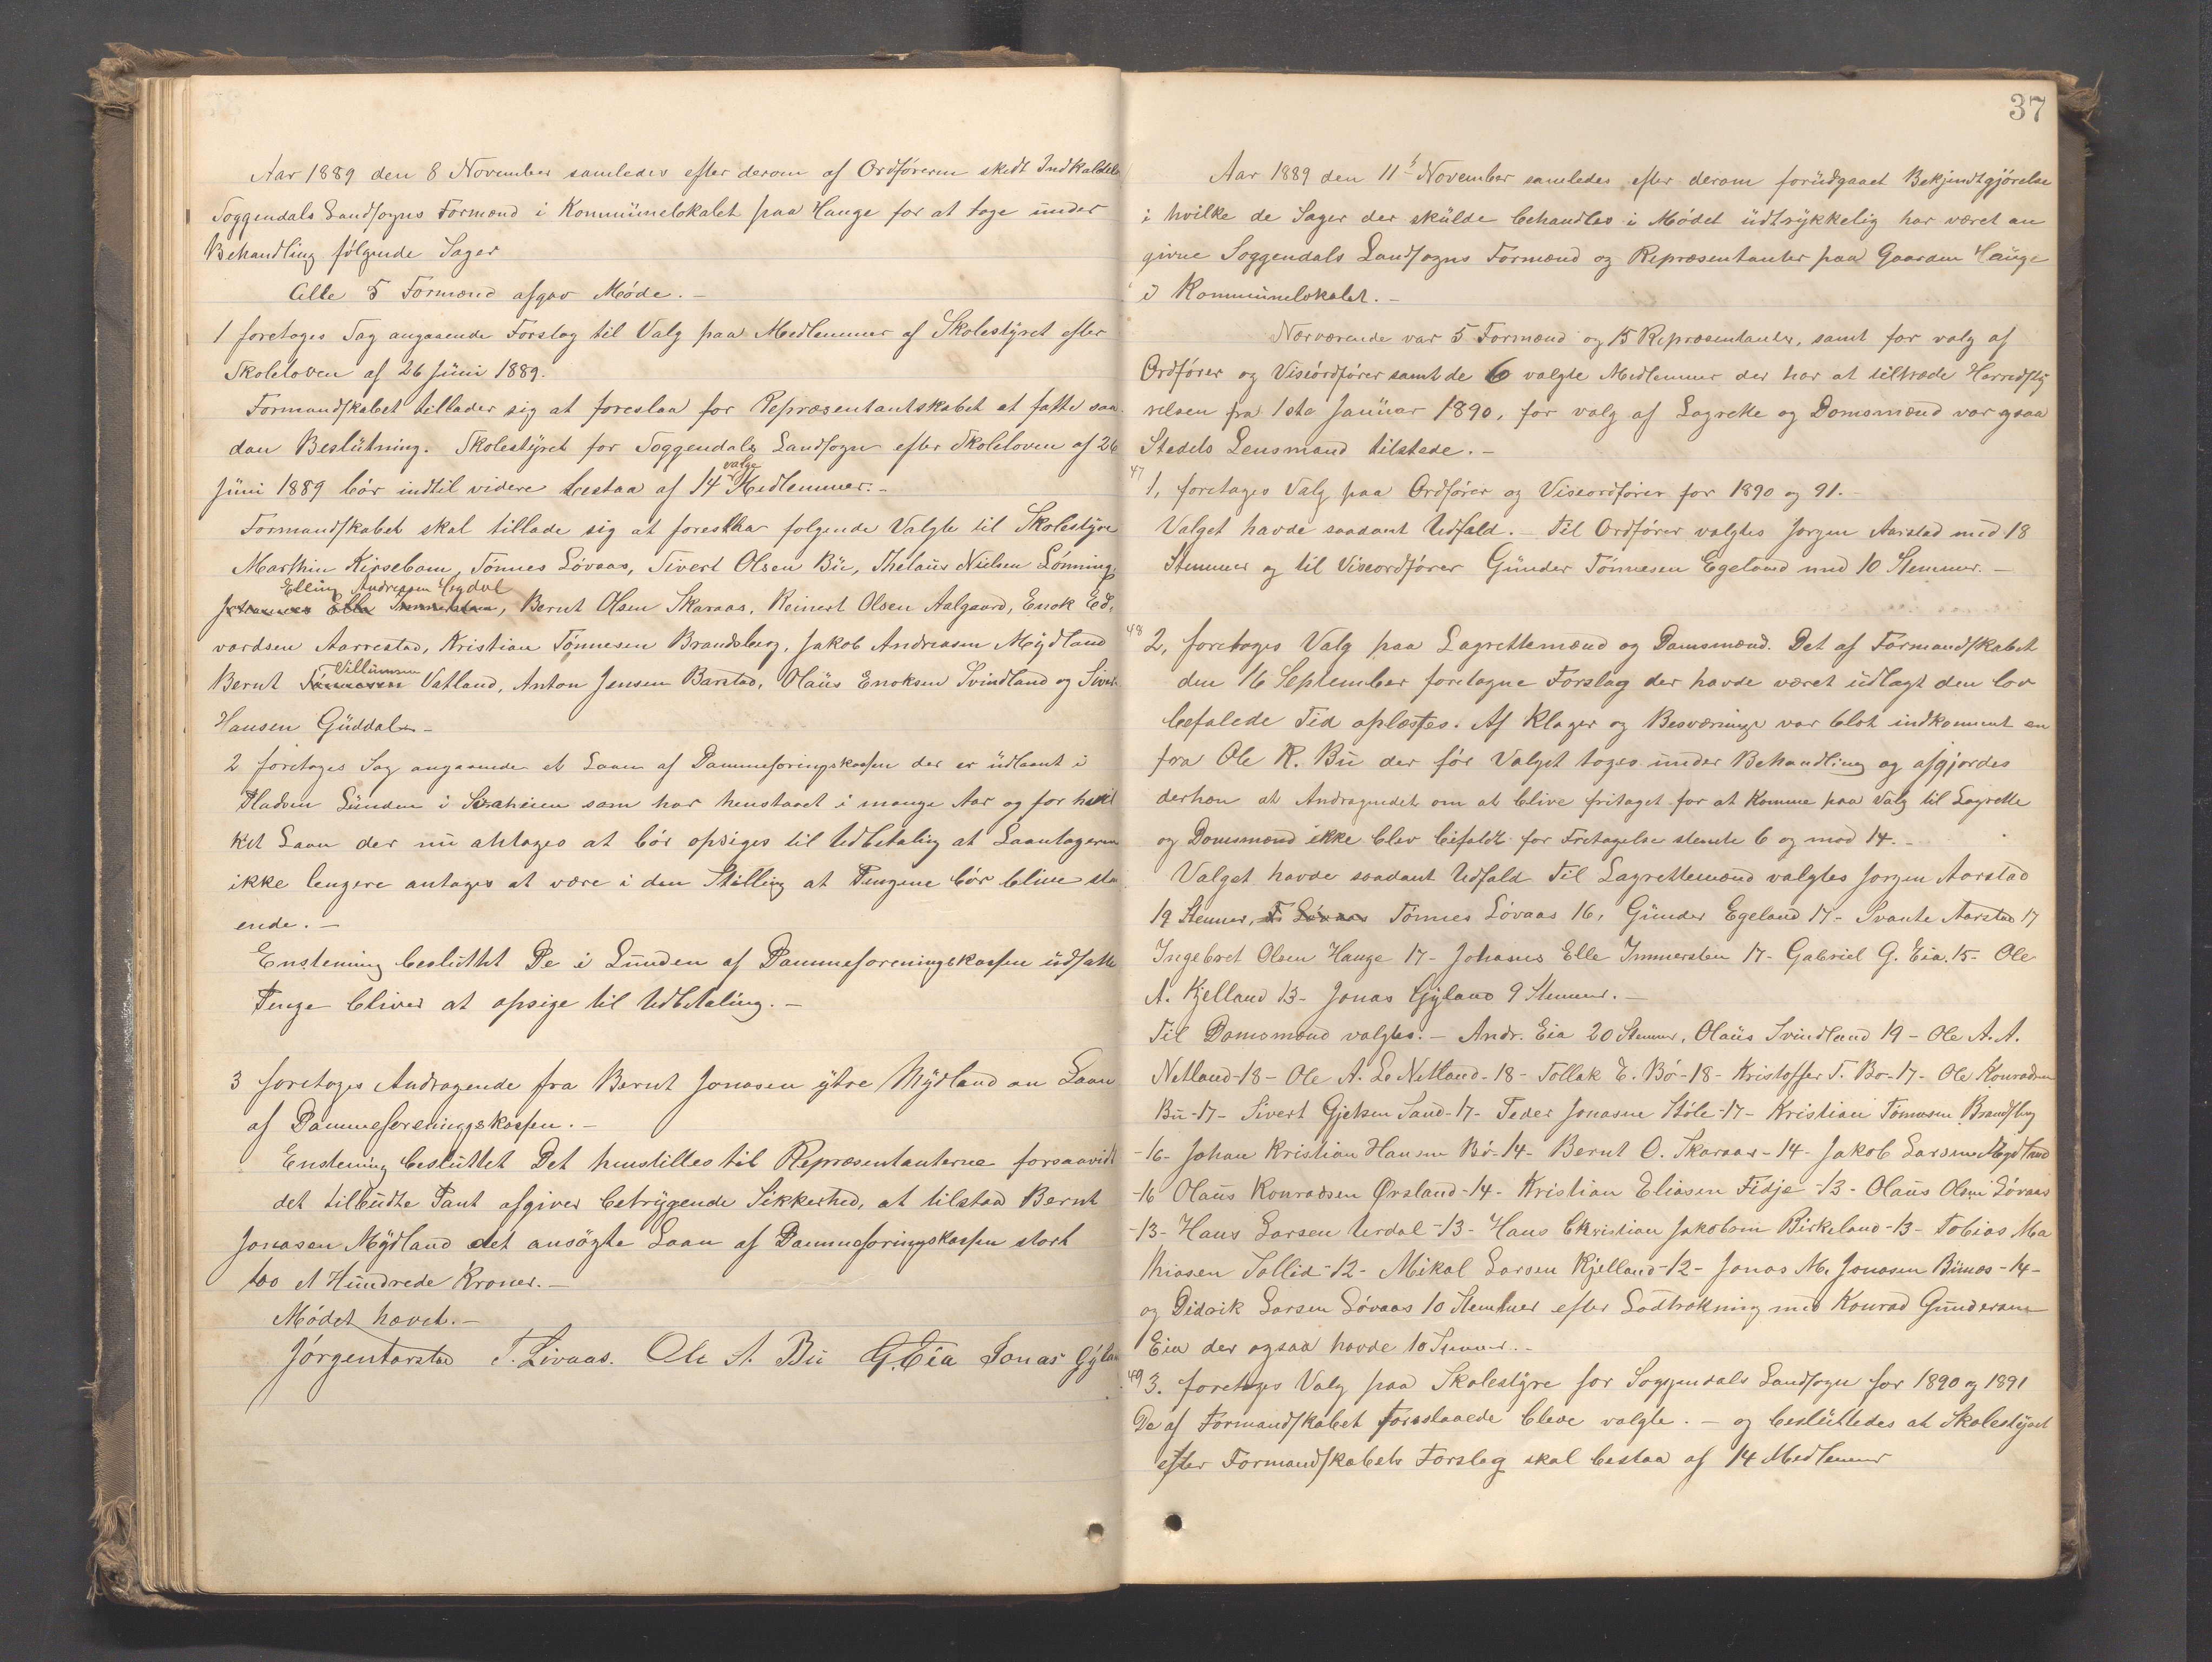 Aar 1889 den 8 November samledes efter derom af Ordføreren skedt Indkaldelse
Soggendals Landsogns Formænd i Kommunelokalet paa Hauge for at tage under
Behandling følgende Sager
Alle 5 Formænd afgav Møde. -
1 foretoges Sag angaaende Forslag til Valg paa Medlemmer af Skolestyret efter
Skoleloven af 26 Juni 1889.
Formandskabet tillader sig at foreslaa for Repræsentantskabet at fatte saa
dan Beslutning. Skolestyret for Soggendals Landsogn efter Skoleloven af 26
valgte
Juni 1889 bør indtil videre bestaa af 14 Medlemmer. -
Formandskabet skal tillade sig at foreslaa følgende Valgte til Skolestyre
Marthin Kirsebom, Tønnes Løvaas, Sivert Olsen Bu, Thelaus Nielsen Lønning,
Elling Andreasen Hegdal
Johannes Elle Immerstein, Bernt Olsen Skaraas, Reinert Olsen Aalgaard, Enok Ed,
vardsen Aarrestad, Kristian Tønnesen Brandsberg, Jakob Andreasen Mydland
Villumsen
Bernt Tønnesen Vatland, Anton Jensen Barstad, Olaus Enoksen Svindland og Sivert
Hansen Guddal. -
2 foretoges Sag angaaende et Laan af Dammeforingskassen der er udlaant i
Pladsen Lunden i Sraheien som har henstaaet i mange Aar og for hvil
ket Laan der nu antages at bør opsiges til Udbetaling at Laantageren
ikke lengere antages at være i den Stilling at Pengene bør blive sta
ende. -
Enstemig besluttet De i Lunden af Dammeforeningskassen udsatte
Penge bliver at opsige til Udbetaling. -
3 foretoges Andragende fra Bernt Jonasen ytre Mydland om Laan
af Dammeforeninggskassen. -
Enstemig besluttet Det henstilles til Repræsentanterne forsaavidt
det tilbudte Pant afgiver betryggende Sikkerhed, at tilstaa Bernt
Jonasen Mydland det ansøgte Laan af Dammeforingskassen stort
100 et Hundrede Kroner. -
Mødet hævet. -
Jørgen Aarstad T. Løvaas. Ole A. Bu G. Eia Jonas Gyland
37
Aar 1889 den 11te November samledes efter derom forudgaaet Bekjendtgjørelse
i hvilke de Sager der skulde behandles i Mødet udtrykkelig har været an
givne Soggendals Landsogns Formænd og Repræsentanter paa Gaarden Hauge
i Kommunelokalet. -
Nærværende var 5 Formænd og 15 Repræsentanter, samt for valg af
Ordfører og Viseordfører samt de 6 valgte Medlemmer der har at tiltræde Herredsty
relsen fra 1ste Januar 1890, for valg af Lagrette og Domsmænd var ogsaa
Stedets Lensmand tilstede. -
47
1, foretoges Valg paa Ordfører og Viseordfører for 1890 og 91. -
Valget havde saadant Udfald. - Til Ordfører valgtes Jørgen Aarstad med 18
Stemmer og til Viseordfører Gunder Tønnesen Egeland med 10 Stemmer. -
48
2, foretoges Valg paa Lagrettemænd og Domsmænd. Det af Formandskabet
den 16 September foretagne Forslag der havde været udlagt den lov
befalede Tid oplæstes. Af Klager og Besværinger var blot indkommet en
fra Ole R. Bu der før Valget toges under Behandling og afgjordes
derhen at Andragendet om at blive fritaget for at komme paa Valg til Lagrette
og Domsmænd ikke blev bifaldt for Fretagelse stemte 6 og mod 14. -
Valget havde saadant Udfald Til Lagrettemænd valgtes Jørgen Aarstad
19 Stemmer, T. Løvaas Tønnes Løvaas 16, Gunder Egeland 17 - Svante Aarstad 17
Ingebret Olsen Hauge 17 - Johanes Elle Immerstein 17 - Gabriel G. Eia. 15 - Ole
A. Kjelland 13 - Jonas Gyland 9 Stemmer. -
Til Domsmænd valgtes. - Andr. Eia 20 Stemmer, Olaus Svindland 19 - Ole A. A.
Netland - 18 - Ole A. Lo Netland - 18 - Tollak E. Bø - 18 - Kristoffer T. Bø - 17 - Ole Konradsen
Bu - 17 - Sivert Gjetsen Sand - 17 - Peder Jonasen Støle - 17 - Kristian Tønnesen Brandsberg
- 16 - Johan Kristian Hansen Bø - 14 - Bernt O. Skaraas - 14 - Jakob Larsen Mydland
- 16 Olaus Konradsen Ørsland - 14 - Kristian Eliasen Fidje - 13 - Olaus Olsen Løvaas
- 13 - Hans Larsen Urdal - 13 - Hans Christian Jakobsen Birkeland - 13 - Tobias Ma
thiasen Sollid - 12 - Mikal Larsen Kjelland - 12 - Jonas M. Jonasen Bunes - 14 -
og Didrik Larsen Løvaas 10 Stemmer efter Lodtrækning med Konrad Gundersen
Eia der ogsaa havde 10 Stemmer. -
49
3. foretoges Valg paa Skolestyre for Soggendals Landsogn for 1890 og 1891
De af Formandskabet foreslaaede bleve valgte. - og besluttedes at Skolestyret
efter Formandskabets Forslag skal bestaa af 14 Medlemmer